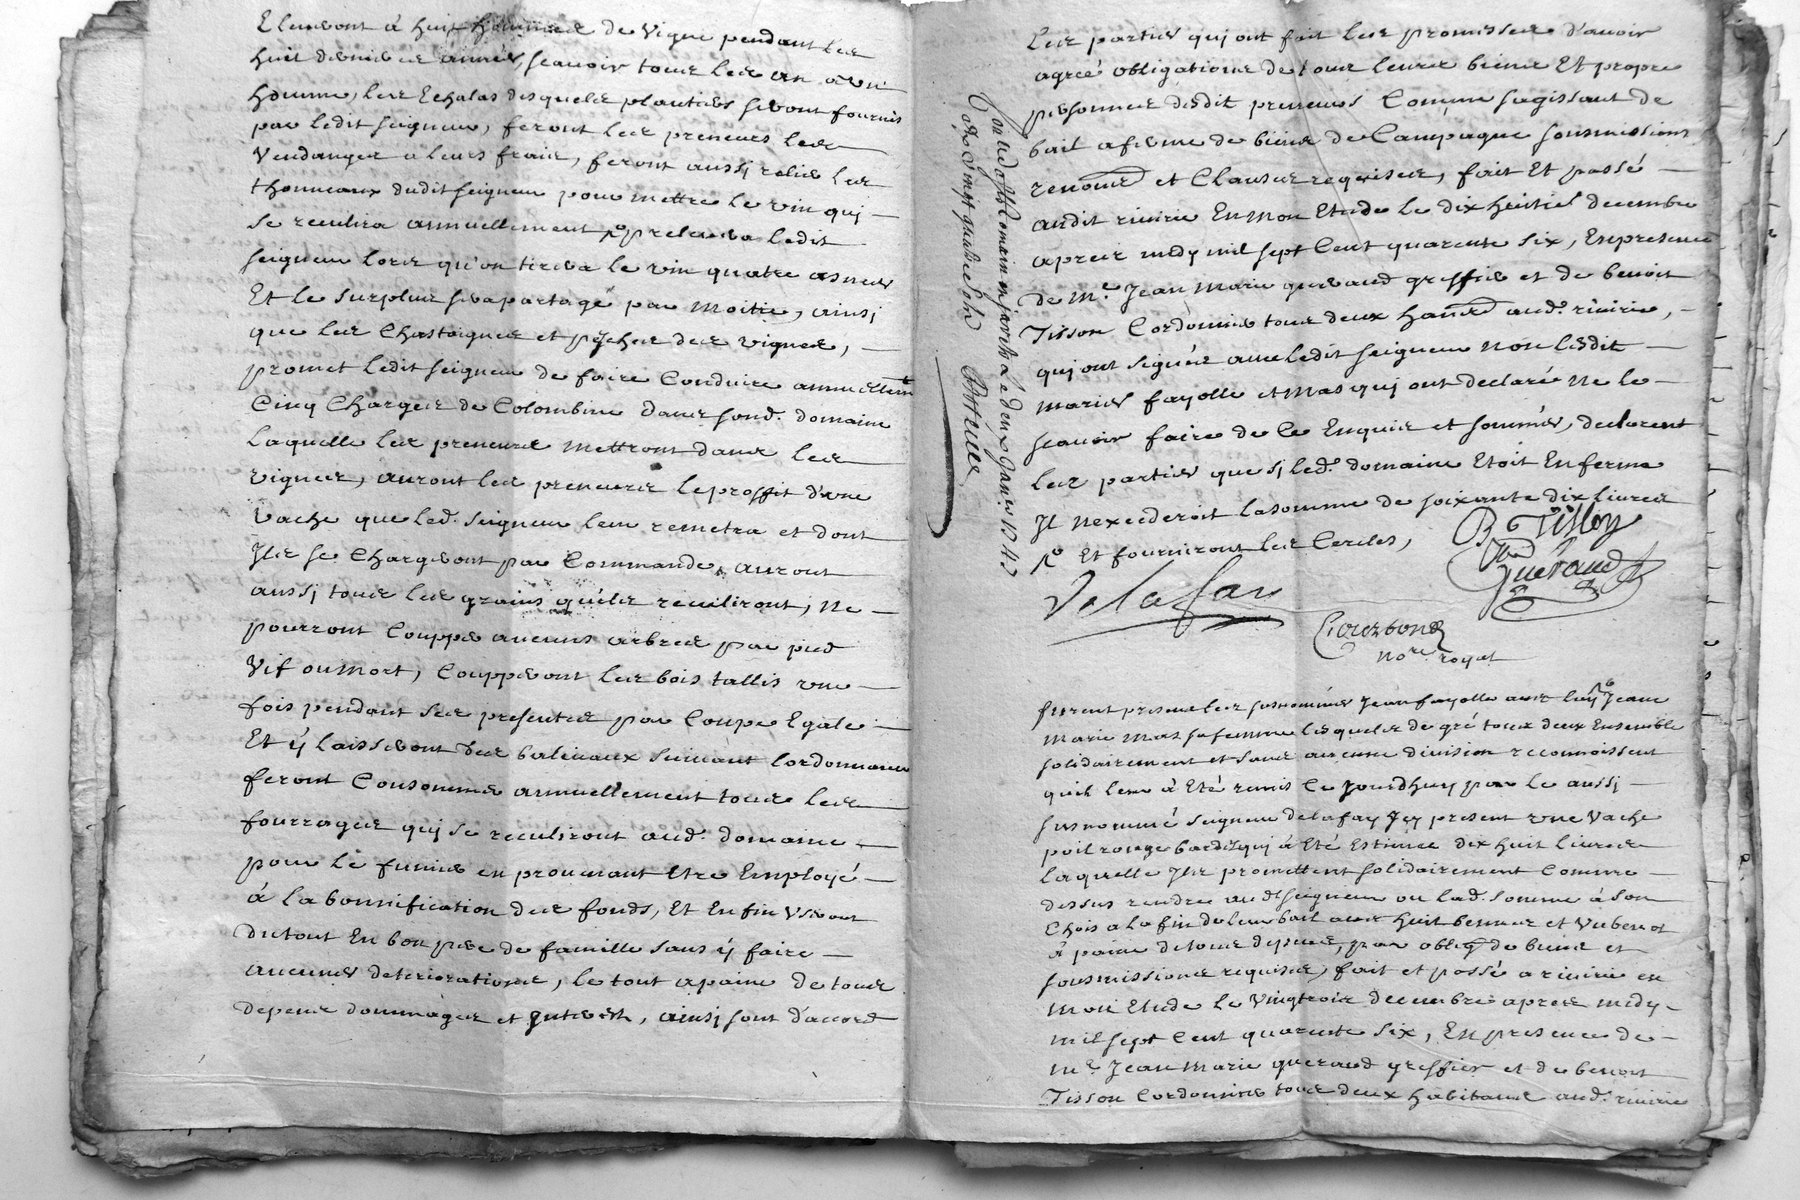 Eleveront à huit hommée de vigne pendant les
huit derniere année, scavoir tous les an a un
homme, les Echalas desquels plantiers seront fournis
par ledit seigneur, feront les preneurs les
vendanges a leurs frais, feront aussj relier les
thonneaux dudit seigneur pour mettre le vin quj
se reculira annuellement prelevera ledit
seigneur lors qu'on tirera le vin quatre asnees
Et le surplus sera partagé par moitie, ainsj
que les Chastaignes et pesches des vignes,
promet ledit seigneur de faire Conduire annuellem
Cinq Charges de Colombine dans sond. domaine
laquelle les preneurs mettront dans les
vignes, auront les preneurs le proffit d'une
vache que led. seigneur leur remetra et dont
Jls se Chargeront par Commande, auront
aussj tous les grains qu'ils reculiront, ne
pourront Coupper aucuns arbres par pied
vif ou mort, Coupperont les bois tallis une
fois pendant ses presentes par Coupe Egale
Et ÿ laisseront des balivaux suivant lordonnance
feront Consommer annuellement tous les
fourrages quj se reculiront aud. domaine
pour le fumier en provenant Etre Employé
à la bonnification des fonds, Et Enfin Useront
du tout En bon pere de famille sans ÿ faire
aucunes deteriorations, le tout a paine de tous
depens dommages et Interest, ainsj sont d'accord
les parties quj ont fait les promisses d'avoir
agreé obligations de tous leurs biens Et propre
personnes desdit preneurs Comme sagissant de
bail a ferme de biens de Campagne sousmissions
renom et Clauses requises, fait Et passé
audit riverie En mon Etude le dix huitier decembre
apres midy mil sept Cent quarente six, En presence
de Me. Jean Marie gueraud greffier et de benoit
Tisson Cordonnier tous deux hab aud. riverie,
quj ont signés avec ledit seigneur non lesdit
mariés fayolle et Mas quj ont declaré ne le
scavoir faire de Ce Enquis et sommés, declarent
les parties que sj led. domaine Etoit En ferme
Jl nexcederoit la somme de soixante dix livres
Et fourniront les Cercles,
B Tisson
Guéraud
Delafay
Courbon
nore. royal
furent presens les susnommés Jean fayolle avec luy Jeane
Marie Mas sa femme lesquels de gré tous deux Ensemble
solidairement et sans aucune division reconnoissent
quil leur à Eté remis Ce Jourdhuy par le aussj
susnommé seigneur delafay Jcy present une vache
poil rouge quj à Eté Estimée dix huit livres
laquelle Jls promettent solidairement Comme
dessus rendre aud seigneur ou lad. somme à son
Chois a la fin de leur bail avec huit bennes et
à paine de tous depens, par oblig de biens et
sousmissions requises, fait et passé a riverie en
mon Etude le vingtrois decembre apres midy
mil sept Cent quarente six, En presence de
Me. Jean Marie gueraud greffier et de benoit
Tisson Cordonnier tous deux habitans aud. riverie